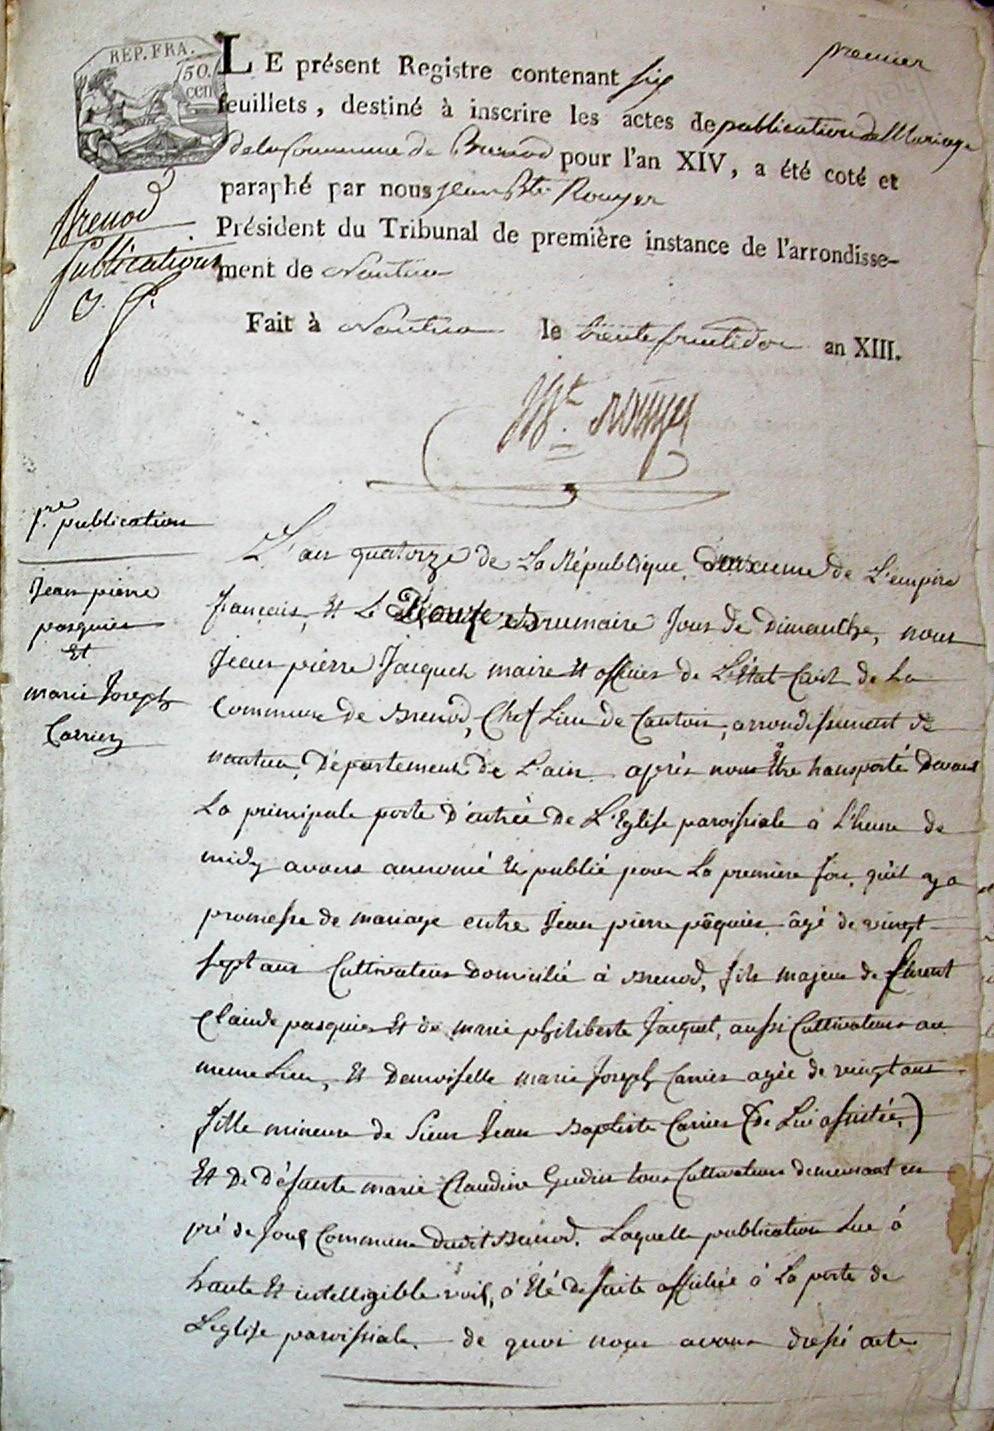 premier
REP. FRA.
50.
cen
LE présent Registre contenant six
feuillets, destiné à inscrire les actes de publication de Mariage
de la Commune de Brenod pour l'an XIV, a été coté et
paraphé par nous Jean Bte Rouyer
Président du Tribunal de première instance de l'arrondisse-
ment de Nantua
Fait à Nantua le trente fructidor an XIII.
Brenod
publications
JBt. Rouyer
1.re publication
Jean pierre
pasquier
Et
marie Joseph
Carrier
L'an quatorze de La République, deuxieme de L'empire
français, Et Le Douze Brumaire Jour de Dimanche, nous
Jean pierre Jacquet maire Et officier de L'état Civil de La
Commune de Brenod, Chef Lieu de Canton, arrondissement de
nantua, Département de L'ain. après nous être transporté Devant
La principale porte D'entrée De L'Eglise paroissiale à L'heure de
midy avons annoncé Et publié pour La première fois, qu'il y a
promesse de mariage entre Jean pierre pâquier, âgé de vingt
sept ans Cultivateur Domicilié à Brenod, fils majeur de flurent
Claude pasquier Et de marie philiberte Jacquet, aussi Cultivateurs au
meme Lieu, Et Demoiselle marie Joseph Carrier agée de vingt ans
fille mineure de Sieur Jean Baptiste Carrier (De Lui assistée,)
Et De Défunte marie Claudine Gudin tous Cultivateurs demeurant en
pré de Joug Commune dudit Brenod. Laquelle publication Lue à
haute Et intelligible voix, à Eté de suite affichée à La porte de
L'eglise paroissiale. de quoi nous avons dréssé acte